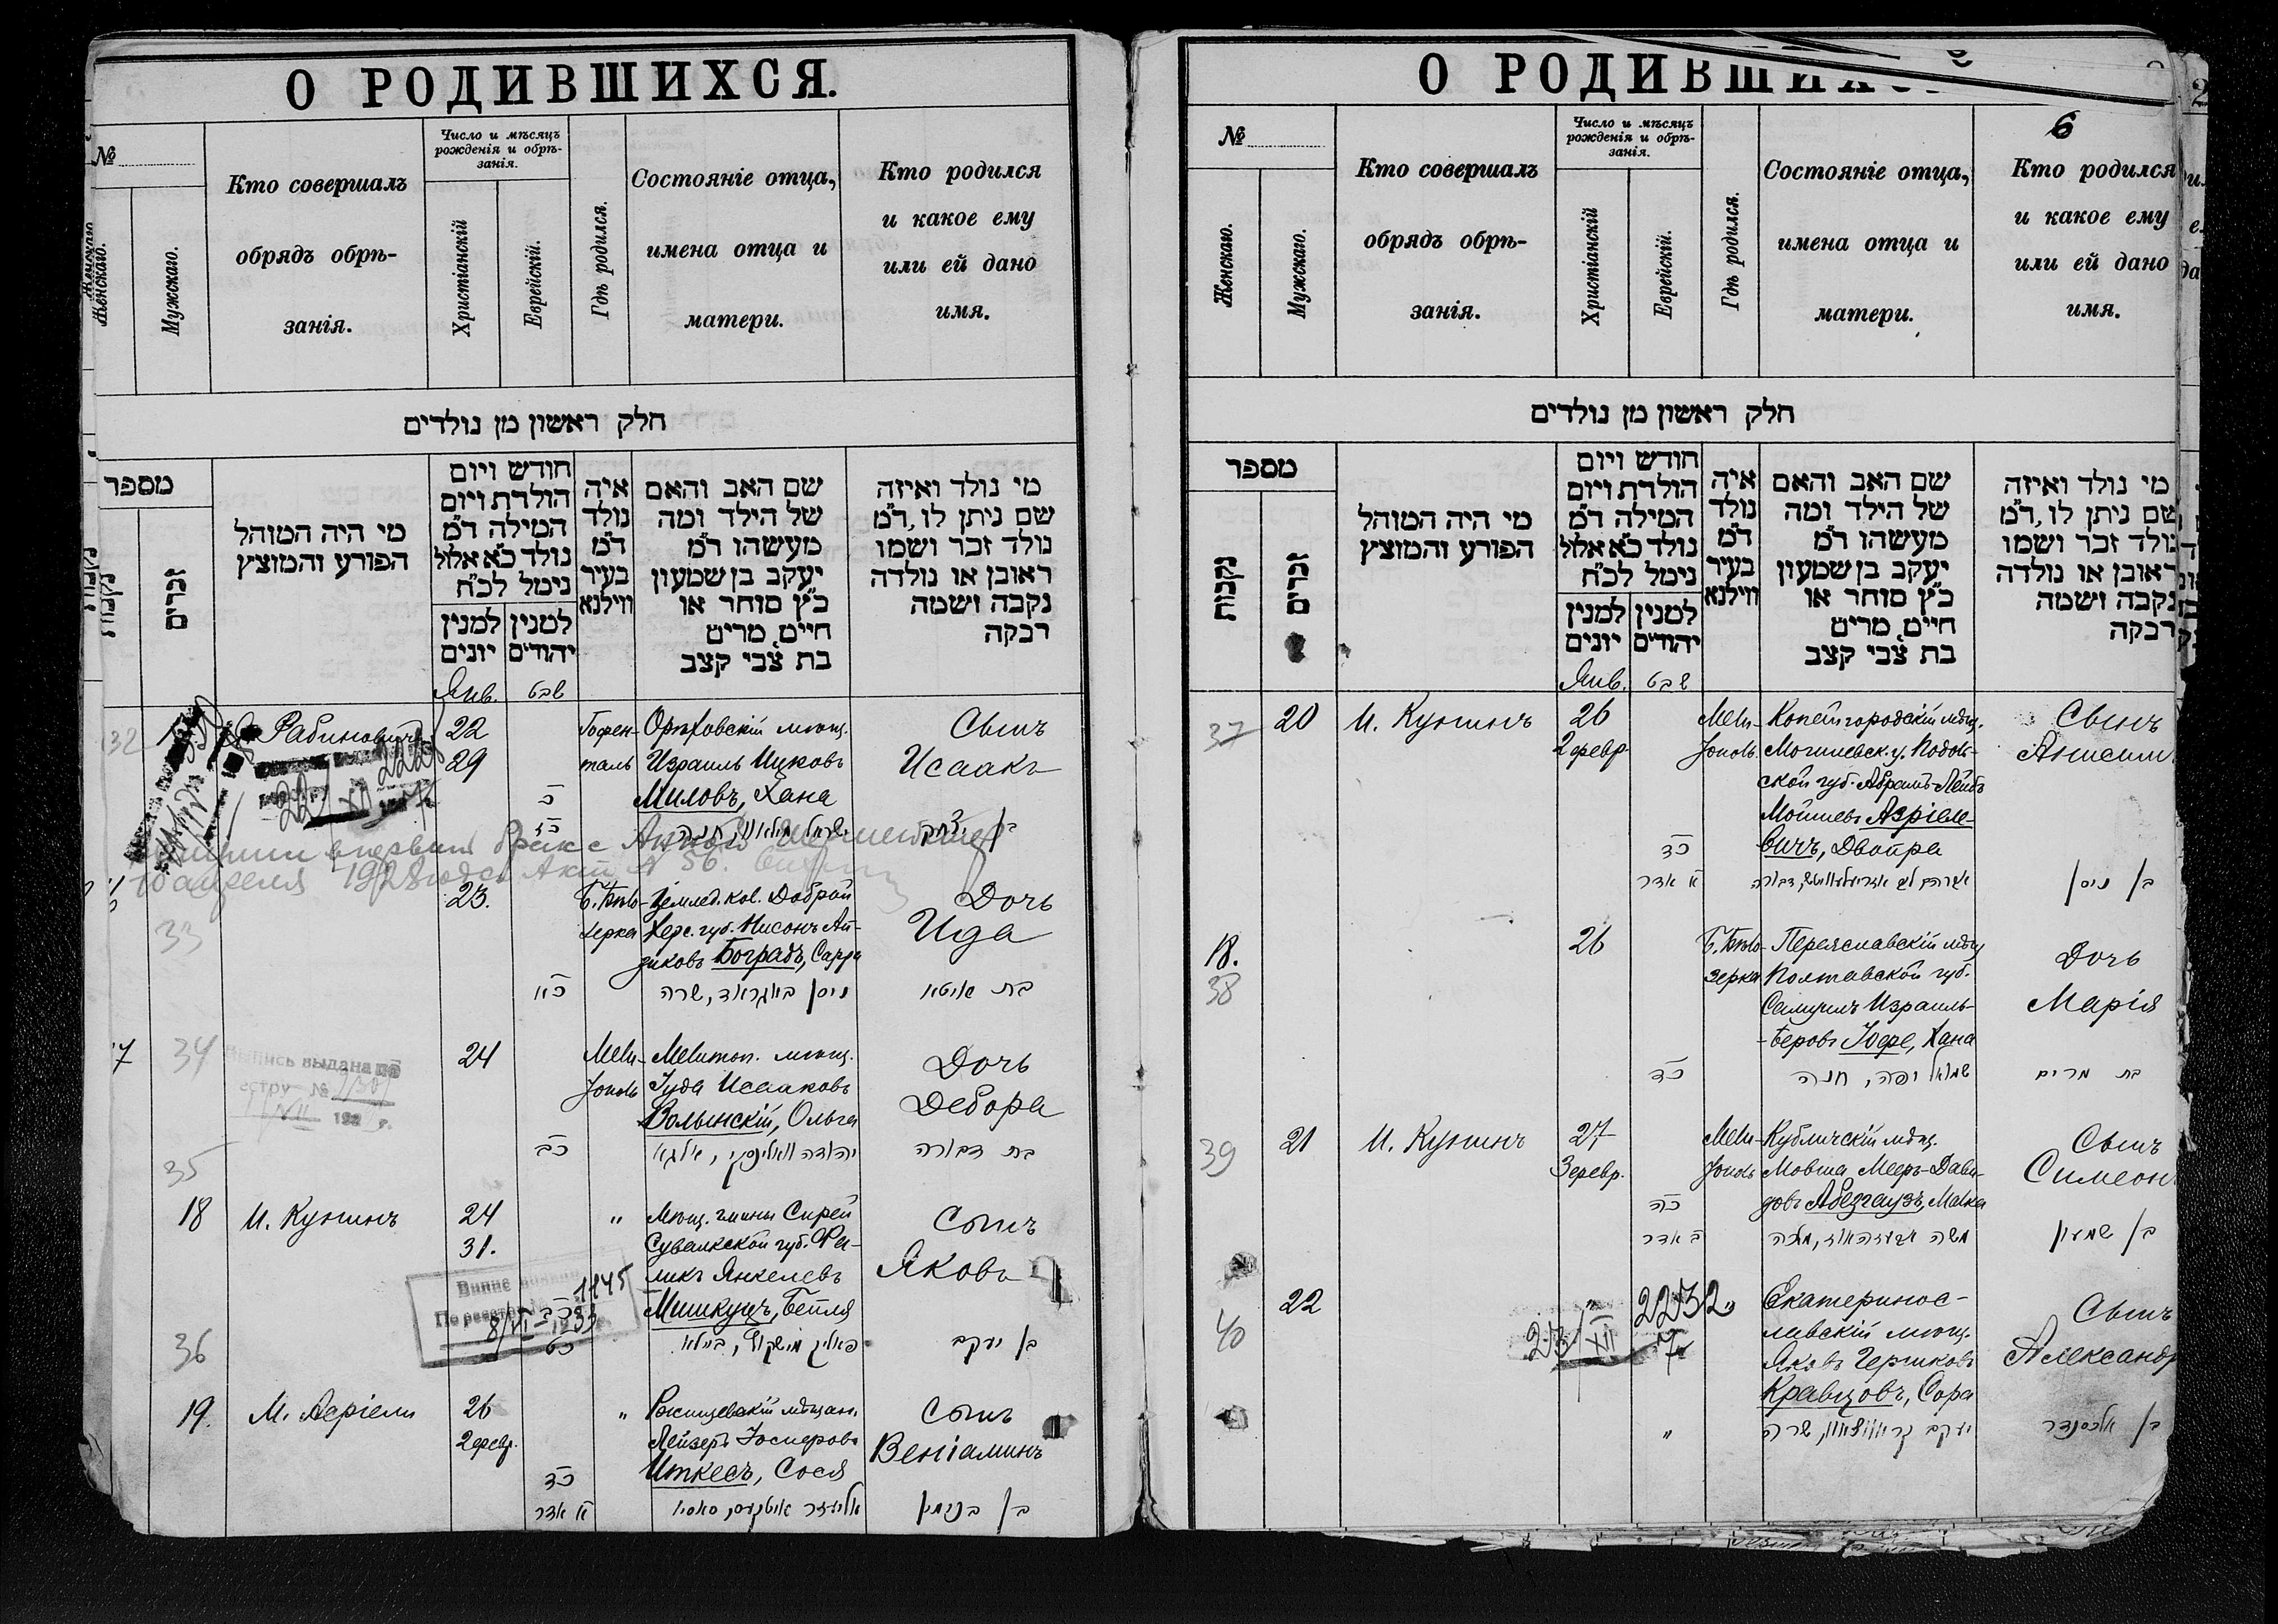 О РОДИВШИХСЯ.
№
Женскаго.
Мужскаго.
Кто совершалъ
обрядъ обрѣ-
занія.
Число и мѣсяцъ
рожденія и обрѣ-
занія.
Христіанскій
Еврейскій.
Гдѣ родился.
Состояніе отца,
имена отца и
матери.
Кто родился
и какое ему
или ей дано
имя.
חלק ראשון מן נולדים
מספר
נקבות
זכרים
מי היה המוהל
הפורע והמוצץ
חודש ויום
הולדת ויום
המילה ד״מ
נולד כ״א אלול
נימל לכ״ח
למנין
יונים
למנין
יהודים
איה
נולד
ד״מ
בעיר
ווילנא
שם האב והאם
של הילד ומה
מעשהו ד״מ
יעקב בן שמעון
כ״ץ סוחר או
חייט מרים
בת צבי קצב
מי נולד ואיזה
שם ניתן לו, ד״מ
נולד זכר ושמו
ראובן או נולדה
נקבה ושמה
רבקה
Янв.
שבט
32
Рабиновичъ
22
29
כ
כז
Гофен-
таль
Орѣховскій мѣщ.
Израиль Ицковъ
Миловъ, Хана
Сынъ
Исаакъ
בן יצחק
10 апреля 1928 года Акт № 56.
33
23.
כא
Б. Бѣло-
зерка
Землед. кол. Доброй
Херс. губ. Нисонъ Ай-
зиковъ Боградъ, Сарра
ניסן באגראד, שרה
Дочь
Ида
בת איטא
7
34
Выпись выдана по
реестру №
192 г.
24
כב
Мели-
тополь
Мелитоп. мѣщ.
Іуда Исааковъ
Волынскій, Ольга
יהודה וואלינסקי, אלגא
Дочь
Дебора
בת דבורה
35
18
И. Кунинъ
24
31.
כב
כט
"
Мѣщ. гмины Сирей
Сувалкской губ. Фа-
ликъ Янкелевъ
Мишкуцъ, Бейля
פאליק מישקוץ, ביילא
Сынъ
Яковъ
בן יעקב
1145
8/VI 1933
36
19.
М. Азріели
26
2 февр.
כד
א אדר
"
Рокишевскій мѣщан.
Лейзеръ Іосиеровъ
Иткесъ, Сося
אליעזר איטקעס, סאסיא
Сынъ
Веніаминъ
בן בנימין
О РОДИВШИХ
6
№
Женскаго.
Мужскаго.
Кто совершалъ
обрядъ обрѣ-
занія.
Число и мѣсяцъ
рожденія и обрѣ-
занія.
Христіанскій
Еврейскій.
Гдѣ родился.
Состояніе отца,
имена отца и
матери.
Кто родился
и какое ему
или ей дано
имя.
חלק ראשון מן נולדים
מספר
נקבות
זכרים
מי היה המוהל
הפורע והמוצץ
חודש ויום
הולדת ויום
המילה ד״מ
נולד כ״א אלול
נימל לכ״ח
למנין
יונים
למנין
יהודים
איה
נולד
ד״מ
בעיר
ווילנא
שם האב והאם
של הילד ומה
מעשהו ד״מ
יעקב בן שמעון
כ״ץ סוחר או
חייט מרים
בת צבי קצב
מי נולד ואיזה
שם ניתן לו, ד״מ
נולד זכר ושמו
ראובן או נולדה
נקבה ושמה
רבקה
Янв.
שבט
37
20
И. Кунинъ
26
2 февр.
כד
א אדר
Мели-
тополь
Копайгородскій мѣщ.
Могилевск. у. Подоль-
ской губ. Абрамъ-Лейбъ
Мошковъ Азріеле-
вичъ, Двойра
אברהם ליב אזריעלעוויטש, דבורה
Сынъ
בן ניסן
18.
38
26
כד
Б. Бѣло-
зерка
Переяславскій мѣщ
Полтавской губ.
Самуилъ Израиль-
Беровъ Іофе, Хана
שמואל יפה, חנה
Дочь
Марія
בת מרים
39
21
И. Кунинъ
27
3 февр.
כה
ב אדר
Мели-
тополь
Кубличскій мѣщ.
Мовша Мееръ-Дави-
довъ Абезгаузъ, Малка
משה אבעזהאוז, מלכה
Сынъ
Симеонъ
בן שמעון
40
22
"
2232
23/XII 7
"
"
Екатеринос-
лавскій мѣщ.
Яковъ Гершковъ
Кравцовъ, Сора
יעקב קראווצאוו, שרה
Сынъ
Александр
בן אלכסנדר